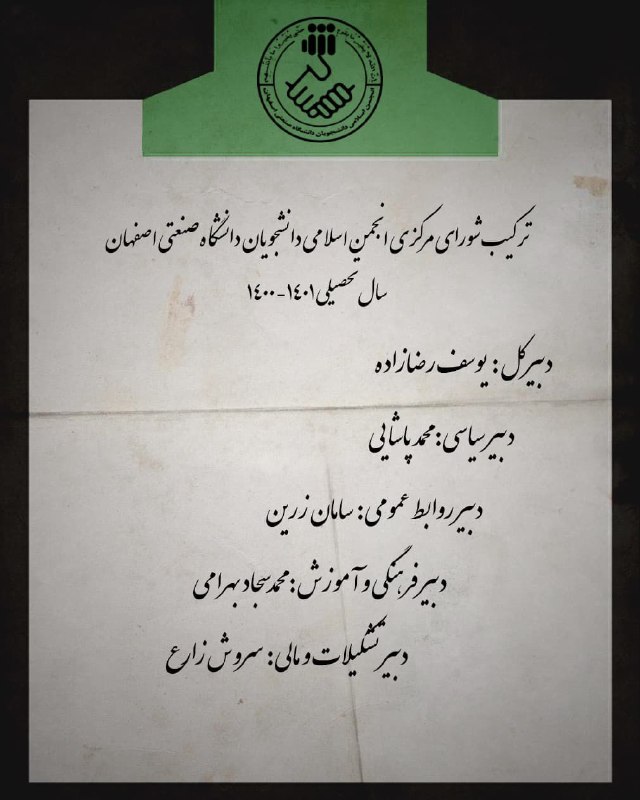 انجمن اسلامی دانشجویان دانشگاه صنعتی اصفهان
ترکیب شورای مرکزی انجمن اسلامی دانشجویان دانشگاه صنعتی اصفهان
سال تحصیلی ۱۴۰۱-۱۴۰۰
دبیرکل: یوسف رضازاده
دبیر سیاسی: محمد پاشایی
دبیر روابط عمومی: سامان زرین
دبیر فرهنگی و آموزش: محمدسجاد بهرامی
دبیر تشکیلات و مالی: سروش زارع